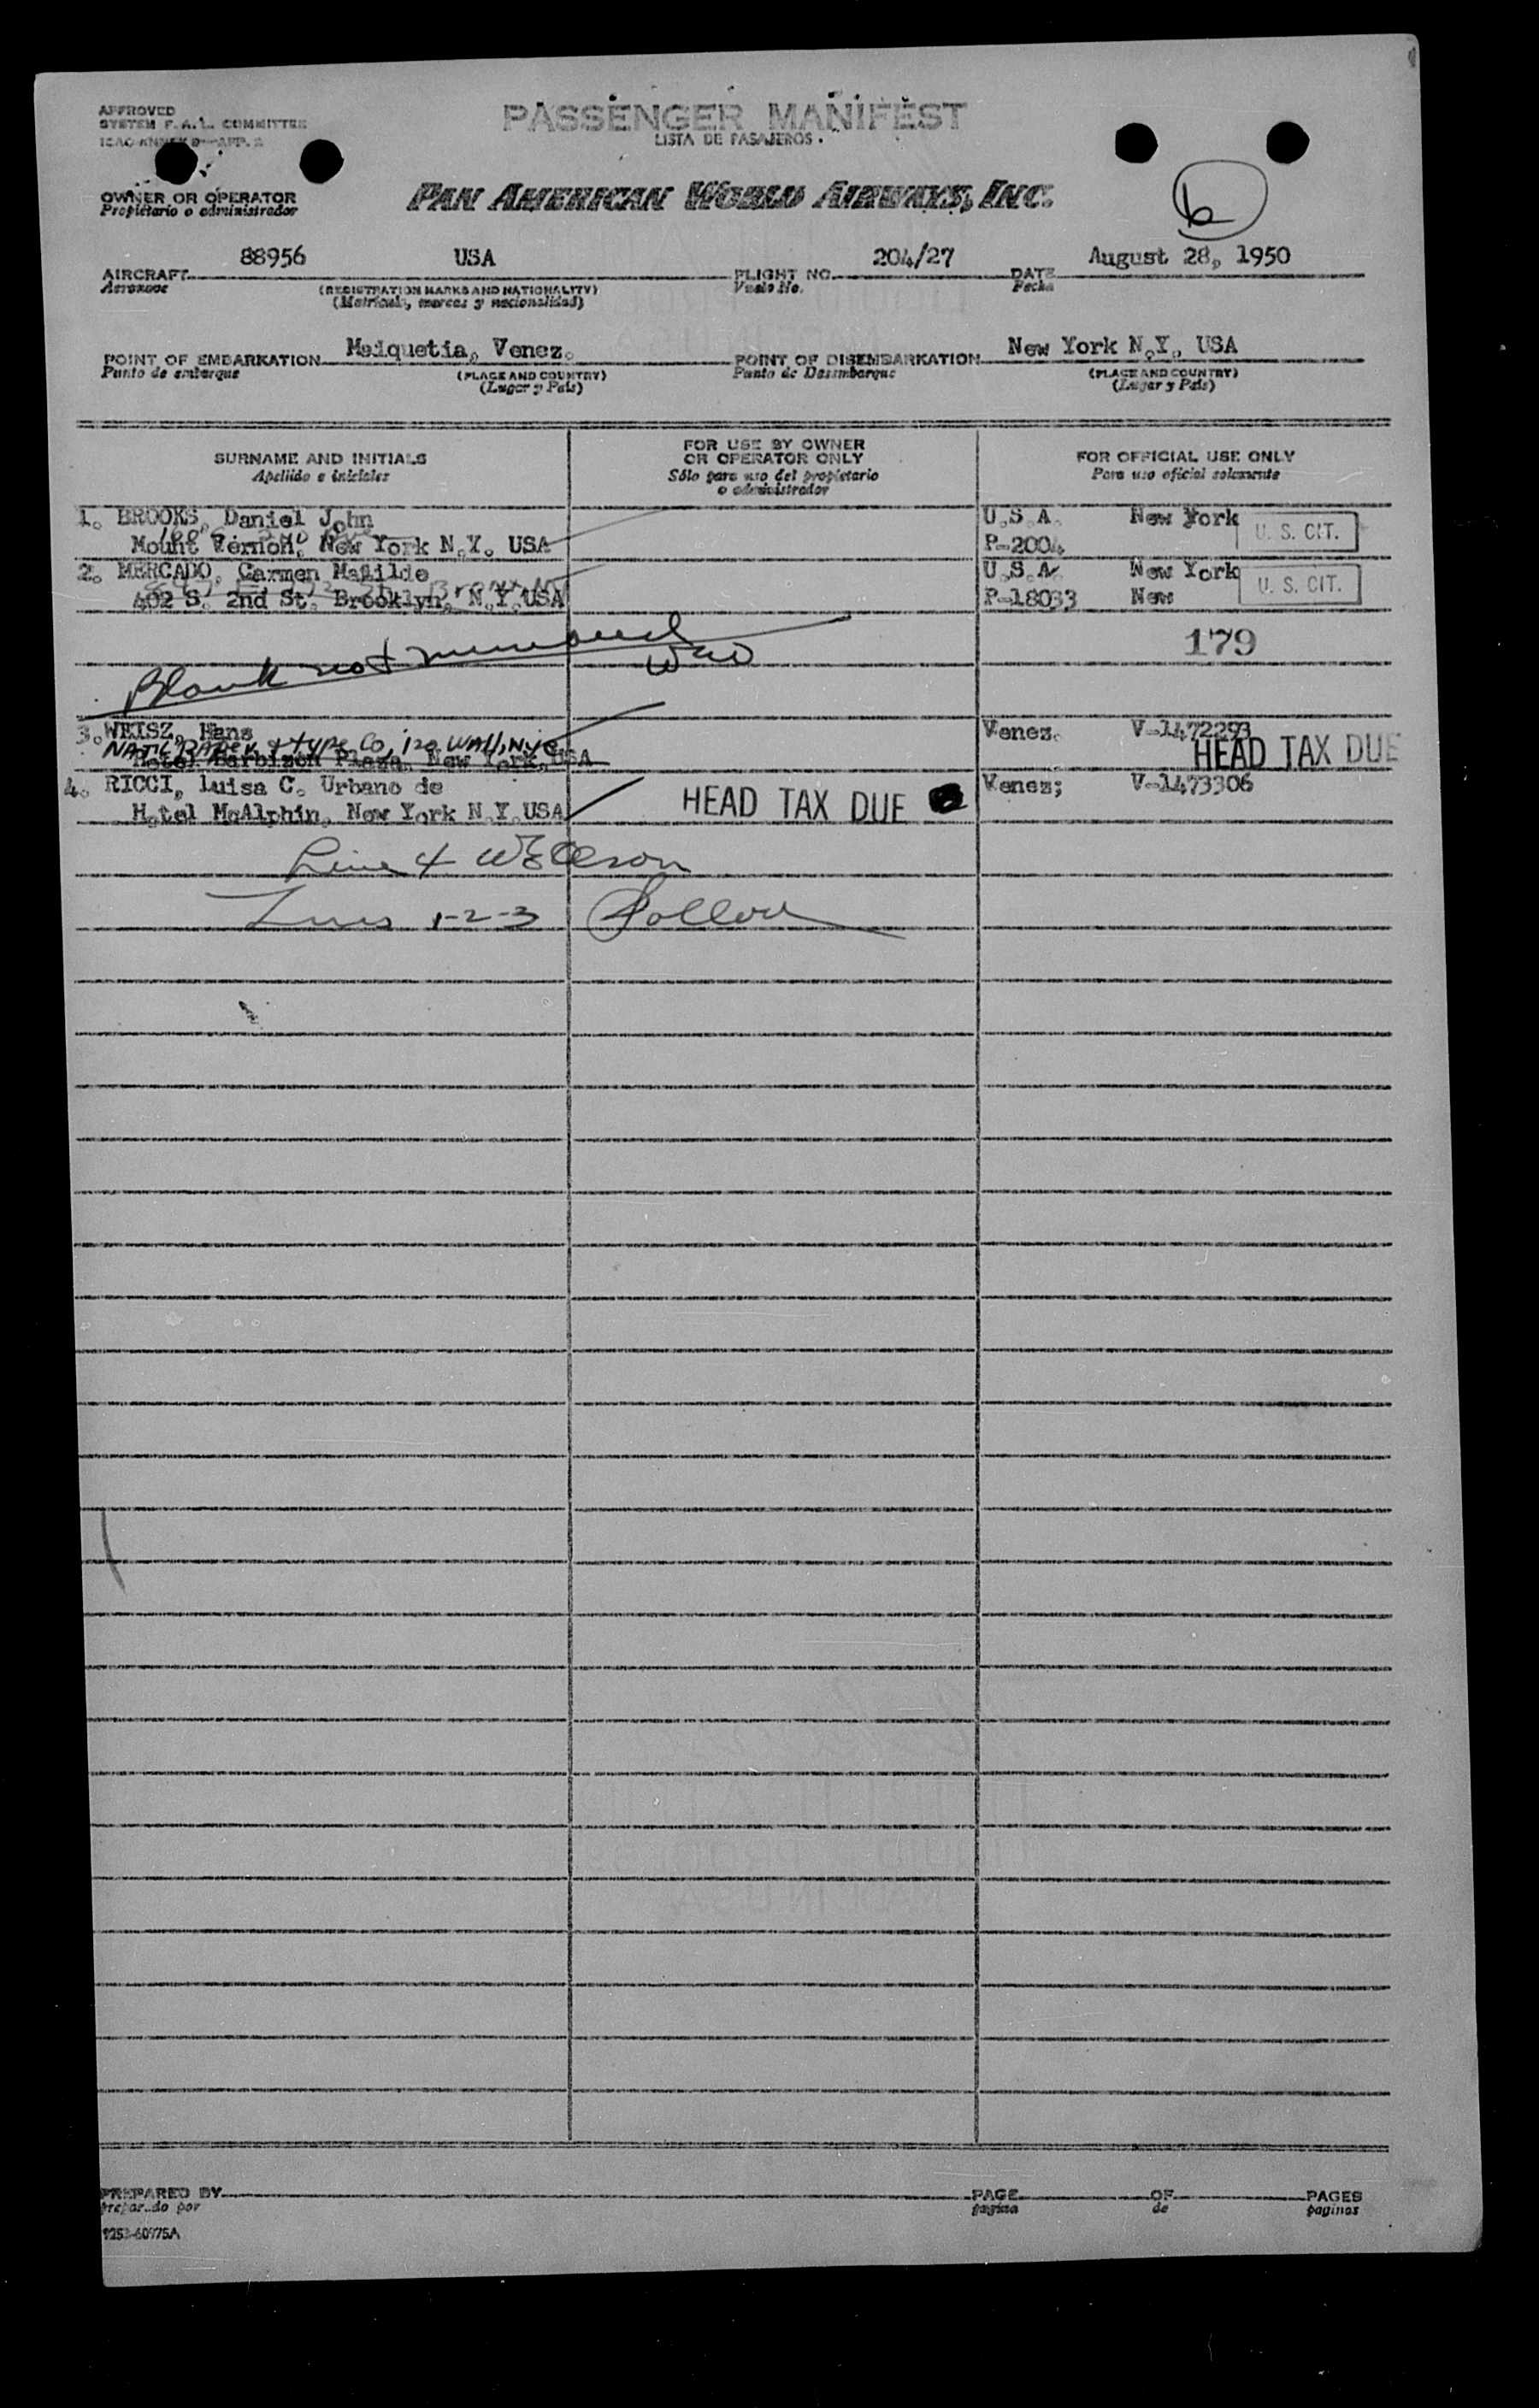 APPROVED
SYSTEM F.A.L. COMMITTEE
ICAO ANNEX 9—APP. 2
PASSENGER MANIFEST
LISTA DE PASAJEROS
OWNER OR OPERATOR
Propietario o administrador
PAN AMERICAN WORLD AIRWAYS, INC.
6
AIRCRAFT 88956 USA FLIGHT NO. 204/27 DATE August 28, 1950
Aeronave (REGISTRATION MARKS AND NATIONALITY) Vuelo No. Fecha
(Matrícula, marcas y nacionalidad)
POINT OF EMBARKATION Maiquetia, Venez. POINT OF DISEMBARKATION New York N.Y. USA
Punto de embarque (PLACE AND COUNTRY) Punto de Desembarque (PLACE AND COUNTRY)
(Lugar y País) (Lugar y País)
SURNAME AND INITIALS FOR USE BY OWNER OR OPERATOR ONLY FOR OFFICIAL USE ONLY
Apellido e iniciales Sólo para uso del propietario o administrador Para uso oficial solamente
1. BROOKS, Daniel John U.S.A. New York
Mount Vernon, New York N.Y. USA P-2004 U. S. CIT.
2. MERCADO, Carmen Matilde U.S.A. New York
402 S. 2nd St. Brooklyn, N.Y. USA P-18033 New U. S. CIT.
179
Blank not
3. WEISZ, Hans Venez. V-1472293
NAT'L PAPER & TYPE Co, 120 WALL, NYC HEAD TAX DUE
Hotel Barbizon Plaza, New York, USA
4. RICCI, Luisa C. Urbano de Venez; V-1473306
Hotel McAlphin, New York N.Y. USA HEAD TAX DUE
Line 4
Lines 1-2-3
PREPARED BY PAGE OF PAGES
preparado por pagina de paginas